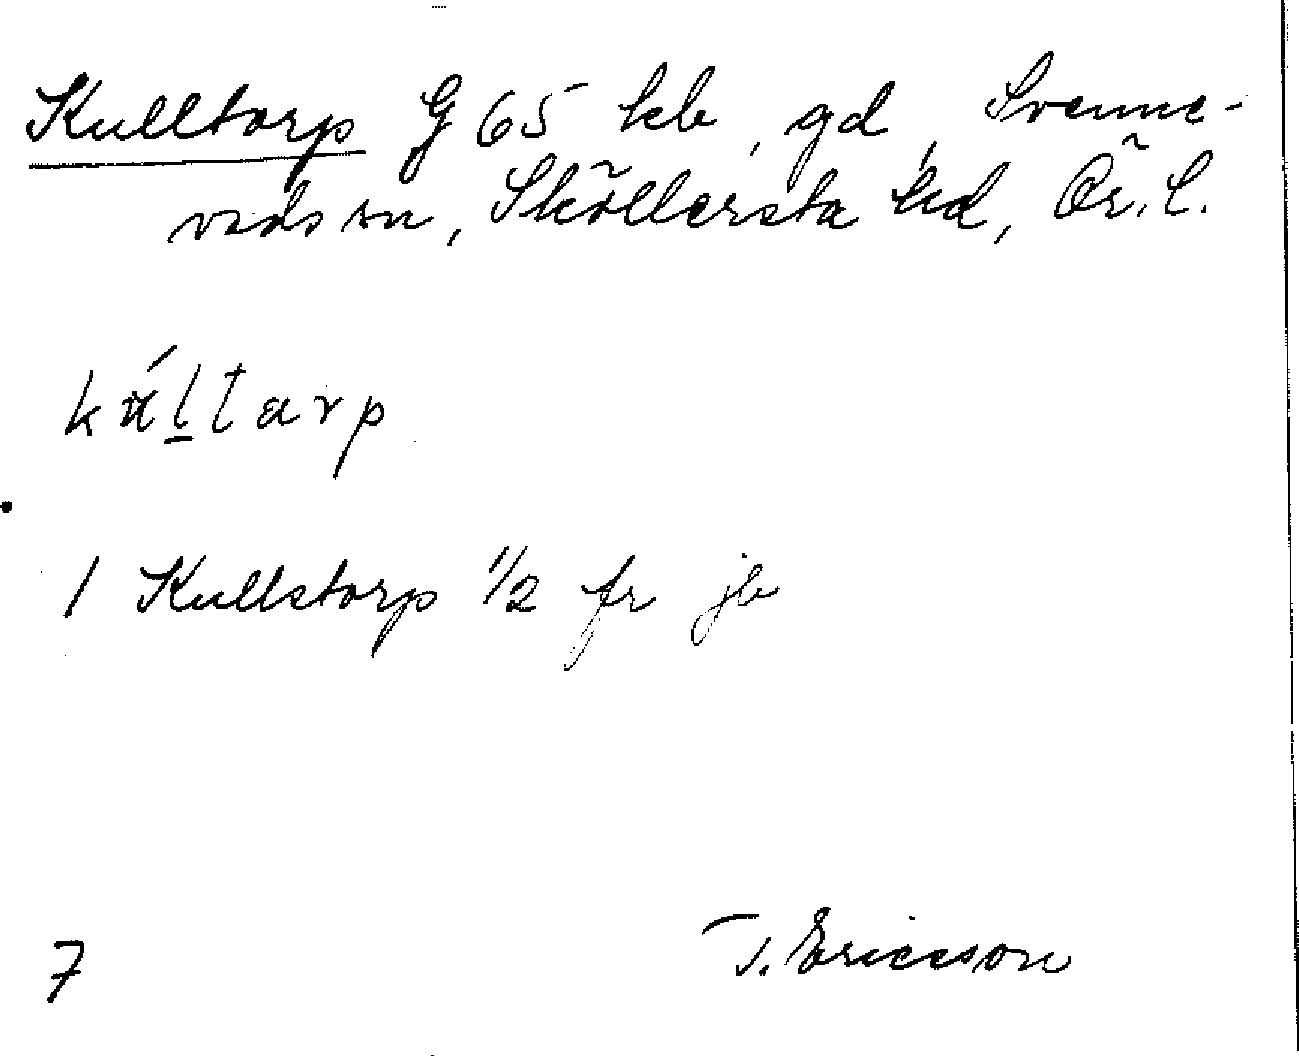 Kulltorp G 65 kb, gd, Svenne-
vads sn, Sköllersta hd, Ör. l.
kúl̠tarp
1 Kullstorp 1/2 fr jb
7
T. Ericsson